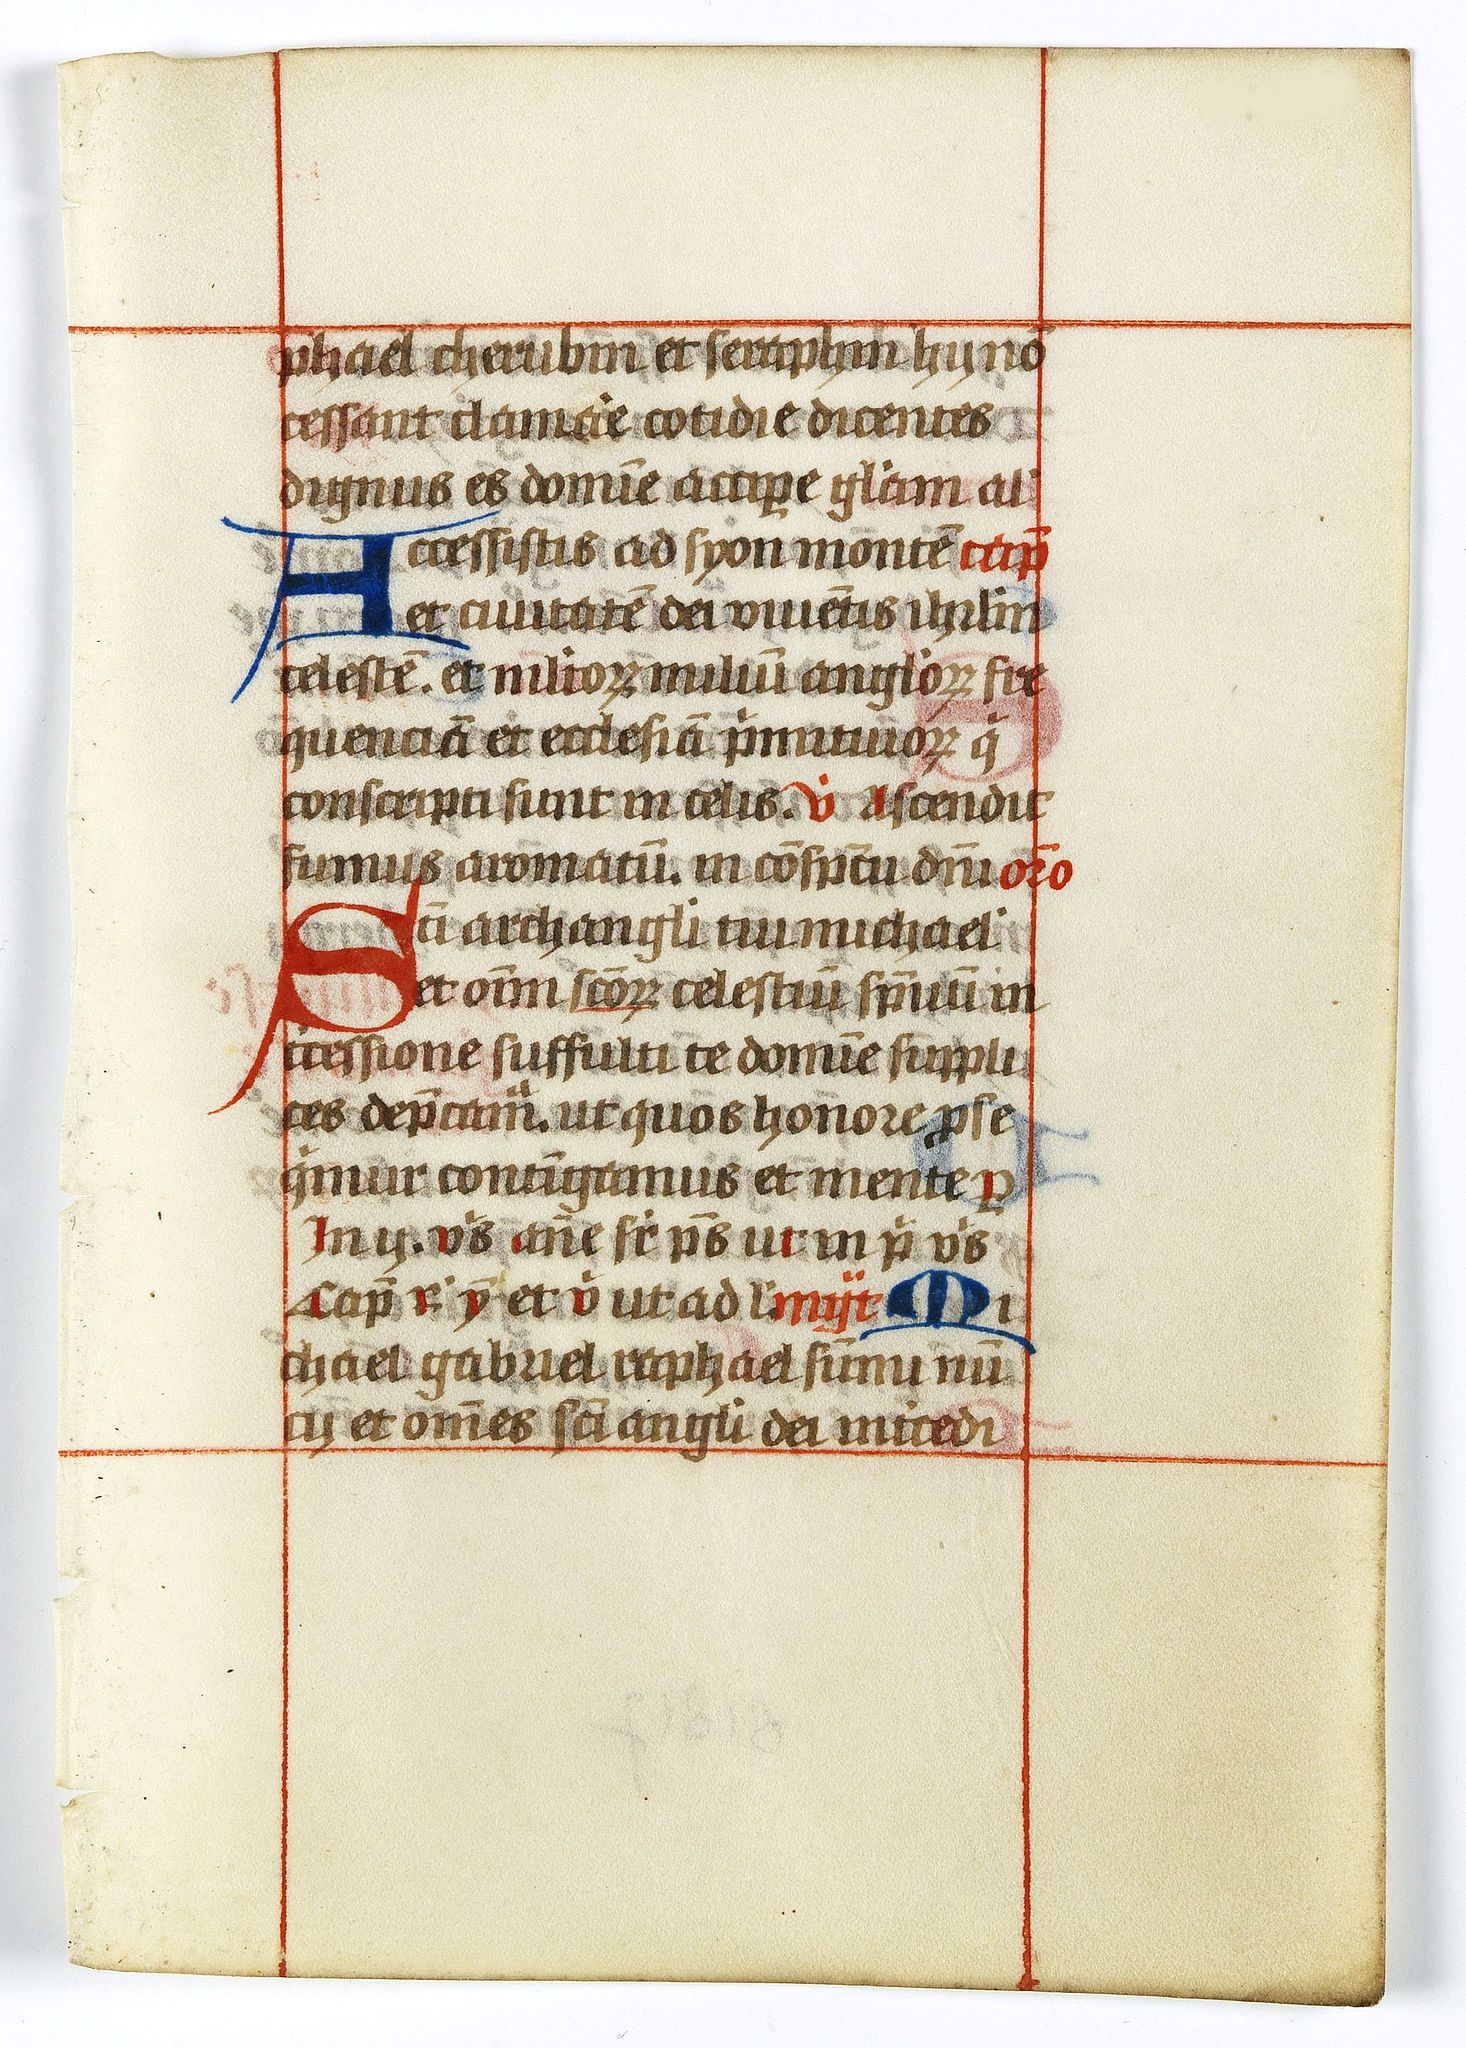 phael cherubin et seraphin hij nō
cessant clamare cotidie dicentes
dignus es domīe accipe gl̄iam al
Accessistis ad syon montē cap̄
et ciuitatē dei viuētis ihrl̄m
celestē. et miliorꝝ miliū angl̄orꝝ fre
quenciā et ecclesiā pͥmitiuorꝝ qͥ
conscripti sunt in celis. v̇ Ascendit
fumus aromatū. in cōsp̄cu dn̄i or̄o
Sc̄i archangl̄i tui michael
et oīm sc̄orꝝ celestiū sp̄uū in
t̄cessione suffulti te domīe suppli
ces dep̄camᷣ. ut quos honore ꝑse
qͥmur contīgamus et mente ꝑ
In ij. vͥs an̄e sr̄ pͫs ut in pͥ vͥs
Cap̄ r̄ ẏ et v̇ ut ad l̄ mg̈t Mi
chael gabriel raphael sūmi nū
cij et om̄es sc̄i angl̄i dei int̄cedi